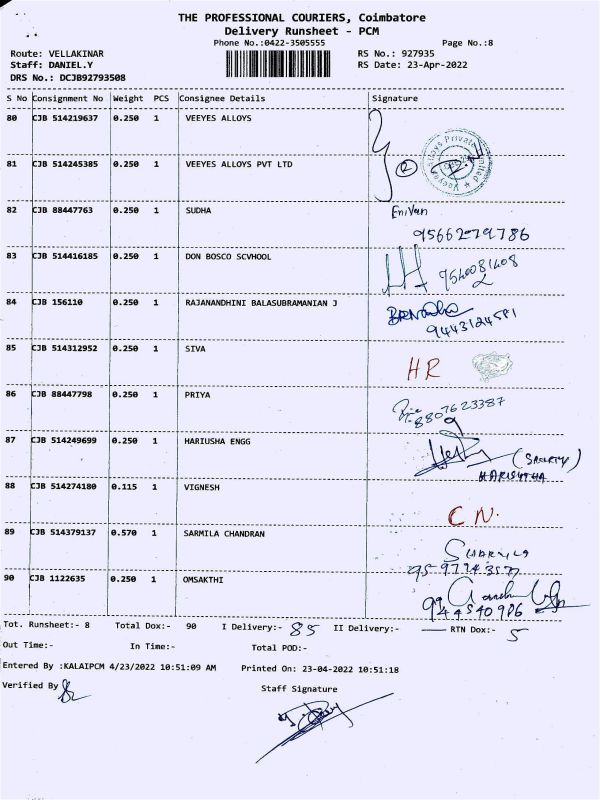 THE PROFESSIONAL COURIERS, Coimbatore
Delivery Runsheet - PCM
Phone No.:0422-3505555 Page No.:8
Route: VELLAKINAR RS No.: 927935
Staff: DANIEL.Y RS Date: 23-Apr-2022
DRS No.: DCJB92793508
S No Consignment No Weight PCS Consignee Details Signature
80 CJB 514219637 0.250 1 VEEYES ALLOYS
81 CJB 514245385 0.250 1 VEEYES ALLOYS PVT LTD
82 CJB 88447763 0.250 1 SUDHA
9566279786
83 CJB 514416185 0.250 1 DON BOSCO SCVHOOL
84 CJB 156110 0.250 1 RAJANANDHINI BALASUBRAMANIAN J
9443124581
85 CJB 514312952 0.250 1 SIVA
HR
86 CJB 88447798 0.250 1 PRIYA
8807623387
87 CJB 514249699 0.250 1 HARIUSHA ENGG
88 CJB 514274180 0.115 1 VIGNESH
CN.
89 CJB 514379137 0.570 1 SARMILA CHANDRAN
90 CJB 1122635 0.250 1 OMSAKTHI
9944540986
Tot. Runsheet:- 8 Total Dox:- 90 I Delivery:- 85 II Delivery:- RTN Dox:- 5
Out Time:- In Time:- Total POD:-
Entered By :KALAIPCM 4/23/2022 10:51:09 AM Printed On: 23-04-2022 10:51:18
Verified By Staff Signature